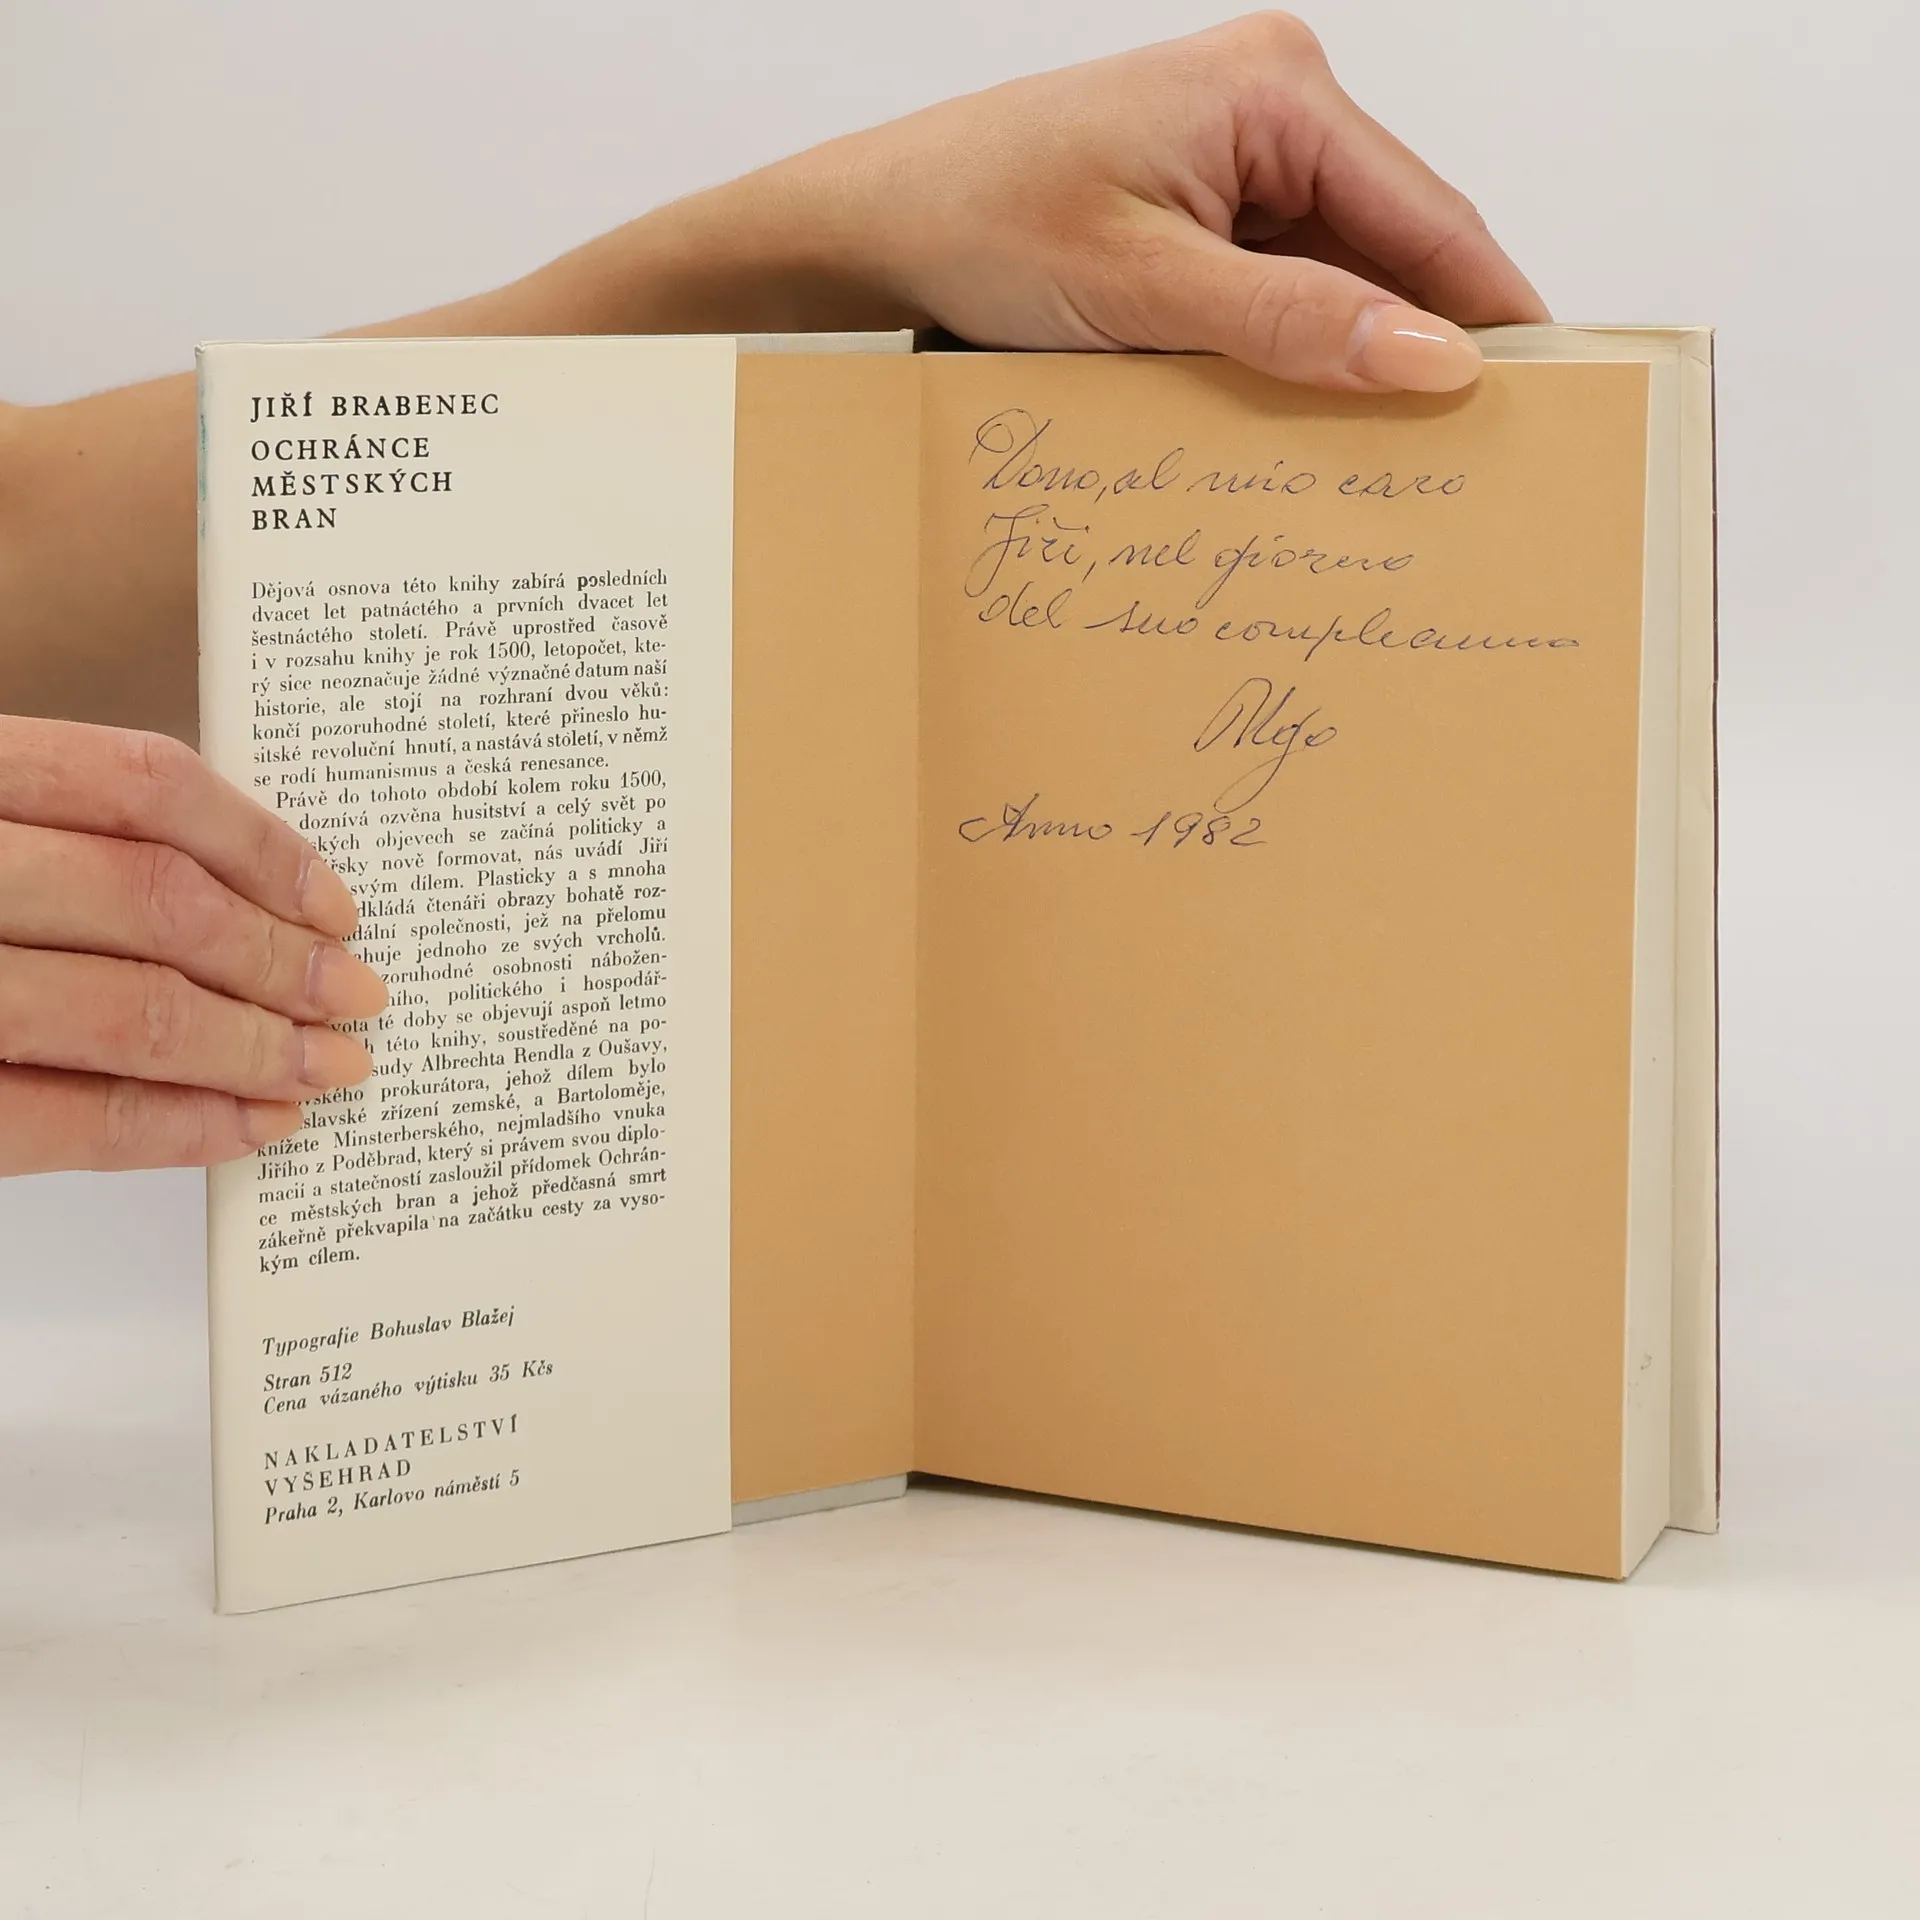 JIŘÍ BRABENEC
OCHRÁNCE
MĚSTSKÝCH
BRAN
Dějová osnova této knihy zabírá posledních
dvacet let patnáctého a prvních dvacet let
šestnáctého století. Právě uprostřed časově
i v rozsahu knihy je rok 1500, letopočet, kte-
rý sice neoznačuje žádné význačné datum naší
historie, ale stojí na rozhraní dvou věků:
končí pozoruhodné století, které přineslo hu-
sitské revoluční hnutí, a nastává století, v němž
se rodí humanismus a česká renesance.
Právě do tohoto období kolem roku 1500,
doznívá ozvěna husitství a celý svět po
ských objevech se začíná politicky a
řsky nově formovat, nás uvádí Jiří
svým dílem. Plasticky a s mnoha
dkládá čtenáři obrazy bohatě roz-
udální společnosti, jež na přelomu
ahuje jednoho ze svých vrcholů.
zoruhodné osobnosti nábožen-
ního, politického i hospodář-
vota té doby se objevují aspoň letmo
h této knihy, soustředěné na po-
sudy Albrechta Rendla z Oušavy,
ovského prokurátora, jehož dílem bylo
slavské zřízení zemské, a Bartoloměje,
knížete Minsterberského, nejmladšího vnuka
Jiřího z Poděbrad, který si právem svou diplo-
macií a statečností zasloužil přídomek Ochrán-
ce městských bran a jehož předčasná smrt
zákeřně překvapila na začátku cesty za vyso-
kým cílem.
Typografie Bohuslav Blažej
Stran 512
Cena vázaného výtisku 35 Kčs
NAKLADATELSTVÍ
VYŠEHRAD
Praha 2, Karlovo náměstí 5
Dono, al mio caro
Jiři, nel giorno
del suo compleanno
Olga
Anno 1982